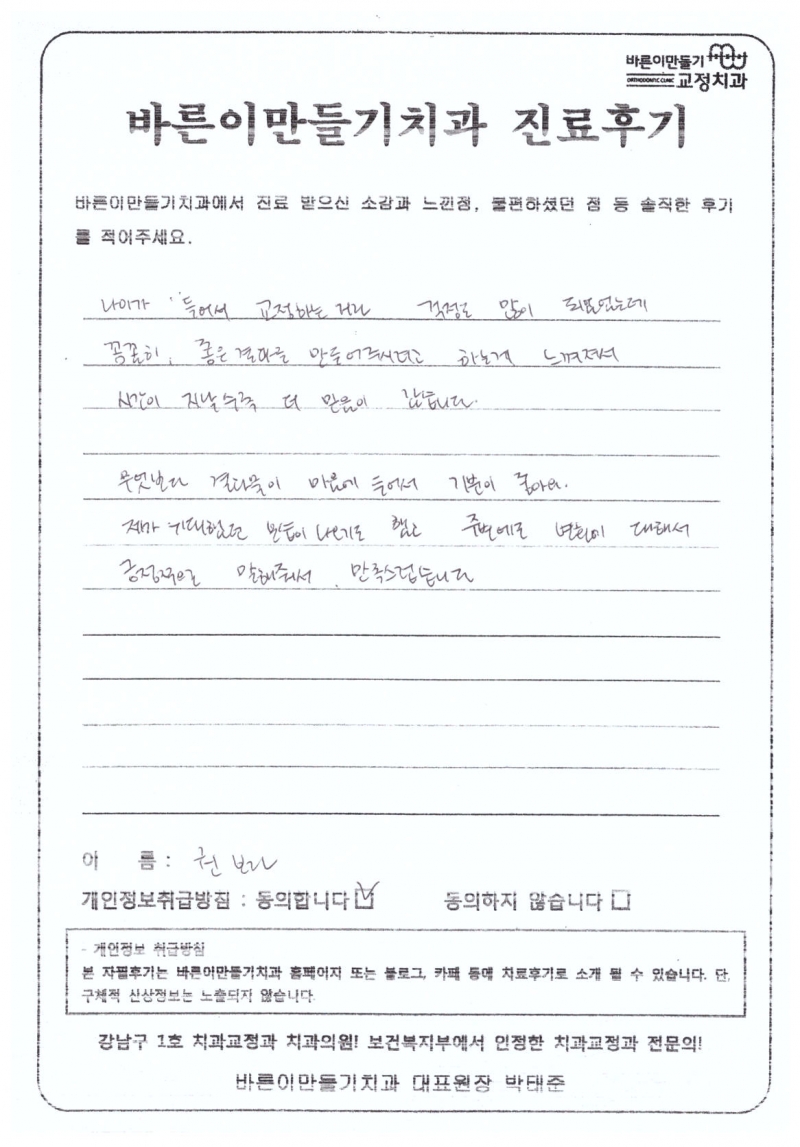 바른이만들기
ORTHODONTIC CLINIC 교정치과
바른이만들기치과 진료후기
바른이만들기치과에서 진료 받으신 소감과 느낀점, 불편하셨던 점 등 솔직한 후기
를 적어주세요.
나이가 들어서 교정하는 거라 걱정도 많이 되었었는데
꼼꼼히, 좋은결과를 만들어주시려고 하는게 느껴져서
시간이 지날수록 더 믿음이 갔습니다.
무엇보다 결과물이 마음에 들어서 기분이 좋아요.
제가 기대했던 모습이 나오기도 했고 주변에도 변화에 대해서
긍정적으로 말해주셔서 만족스럽습니다
이 름 : 권 보라
개인정보취급방침 : 동의합니다 동의하지 않습니다
- 개인정보 취급방침
본 자필후기는 바른이만들기치과 홈페이지 또는 블로그, 카페 등에 치료후기로 소개 될 수 있습니다. 단,
구체적 신상정보는 노출되지 않습니다.
강남구 1호 치과교정과 치과의원! 보건복지부에서 인정한 치과교정과 전문의!
바른이만들기치과 대표원장 박태준